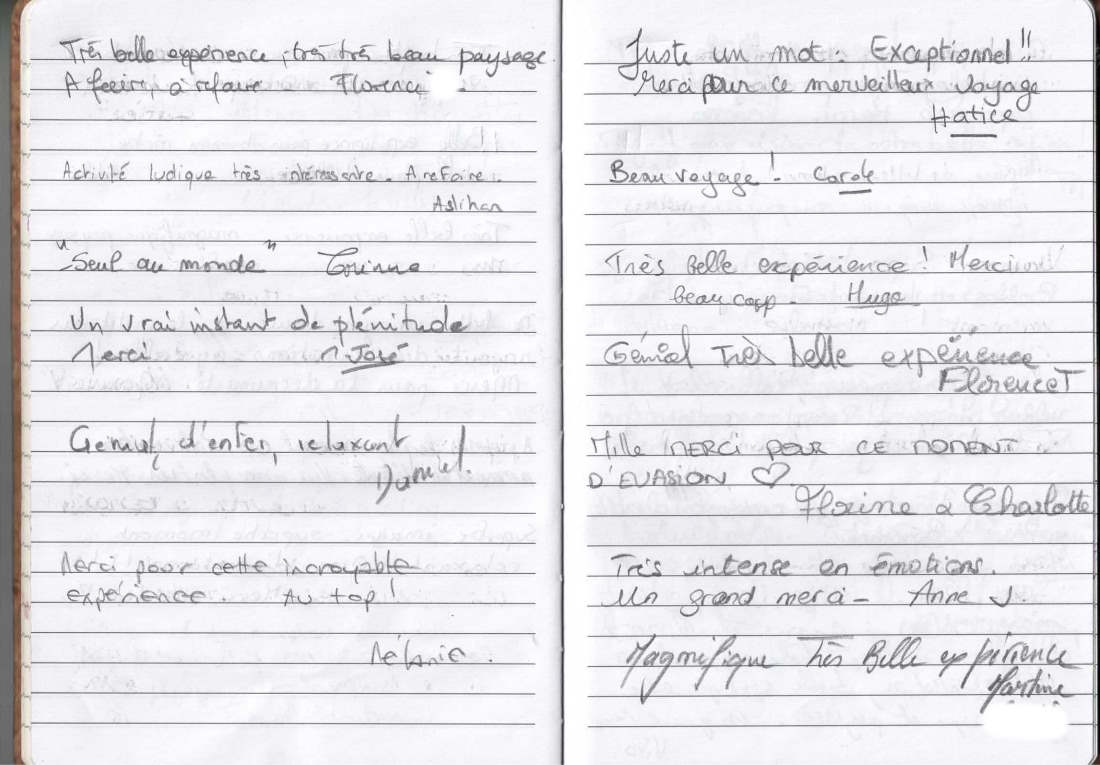 Très belle expérience, très très beau paysage.
A faire, à refaire Florence
Activité ludique très intéressente. A refaire.
Aslihan
"Seul au monde" Corinne
Un vrai instant de plénitude
Merci José
Génial, d'enfer, relaxant
Daniel.
Merci pour cette incroyable
expérience. Au top!
Mélanie.
Juste un mot : Exceptionnel !!
Merci pour ce merveilleux voyage
Hatice
Beau voyage ! - Carole
Très belle expérience ! Merci
beaucoup Hugo
Génial Très belle expérience
Florence T
Mille MERCI POUR CE MOMENT
D'EVASION ♡
Florine & Charlotte
Très intense en émotions.
Un grand merci - Anne J.
Magnifique Très Belle expérience
Martine